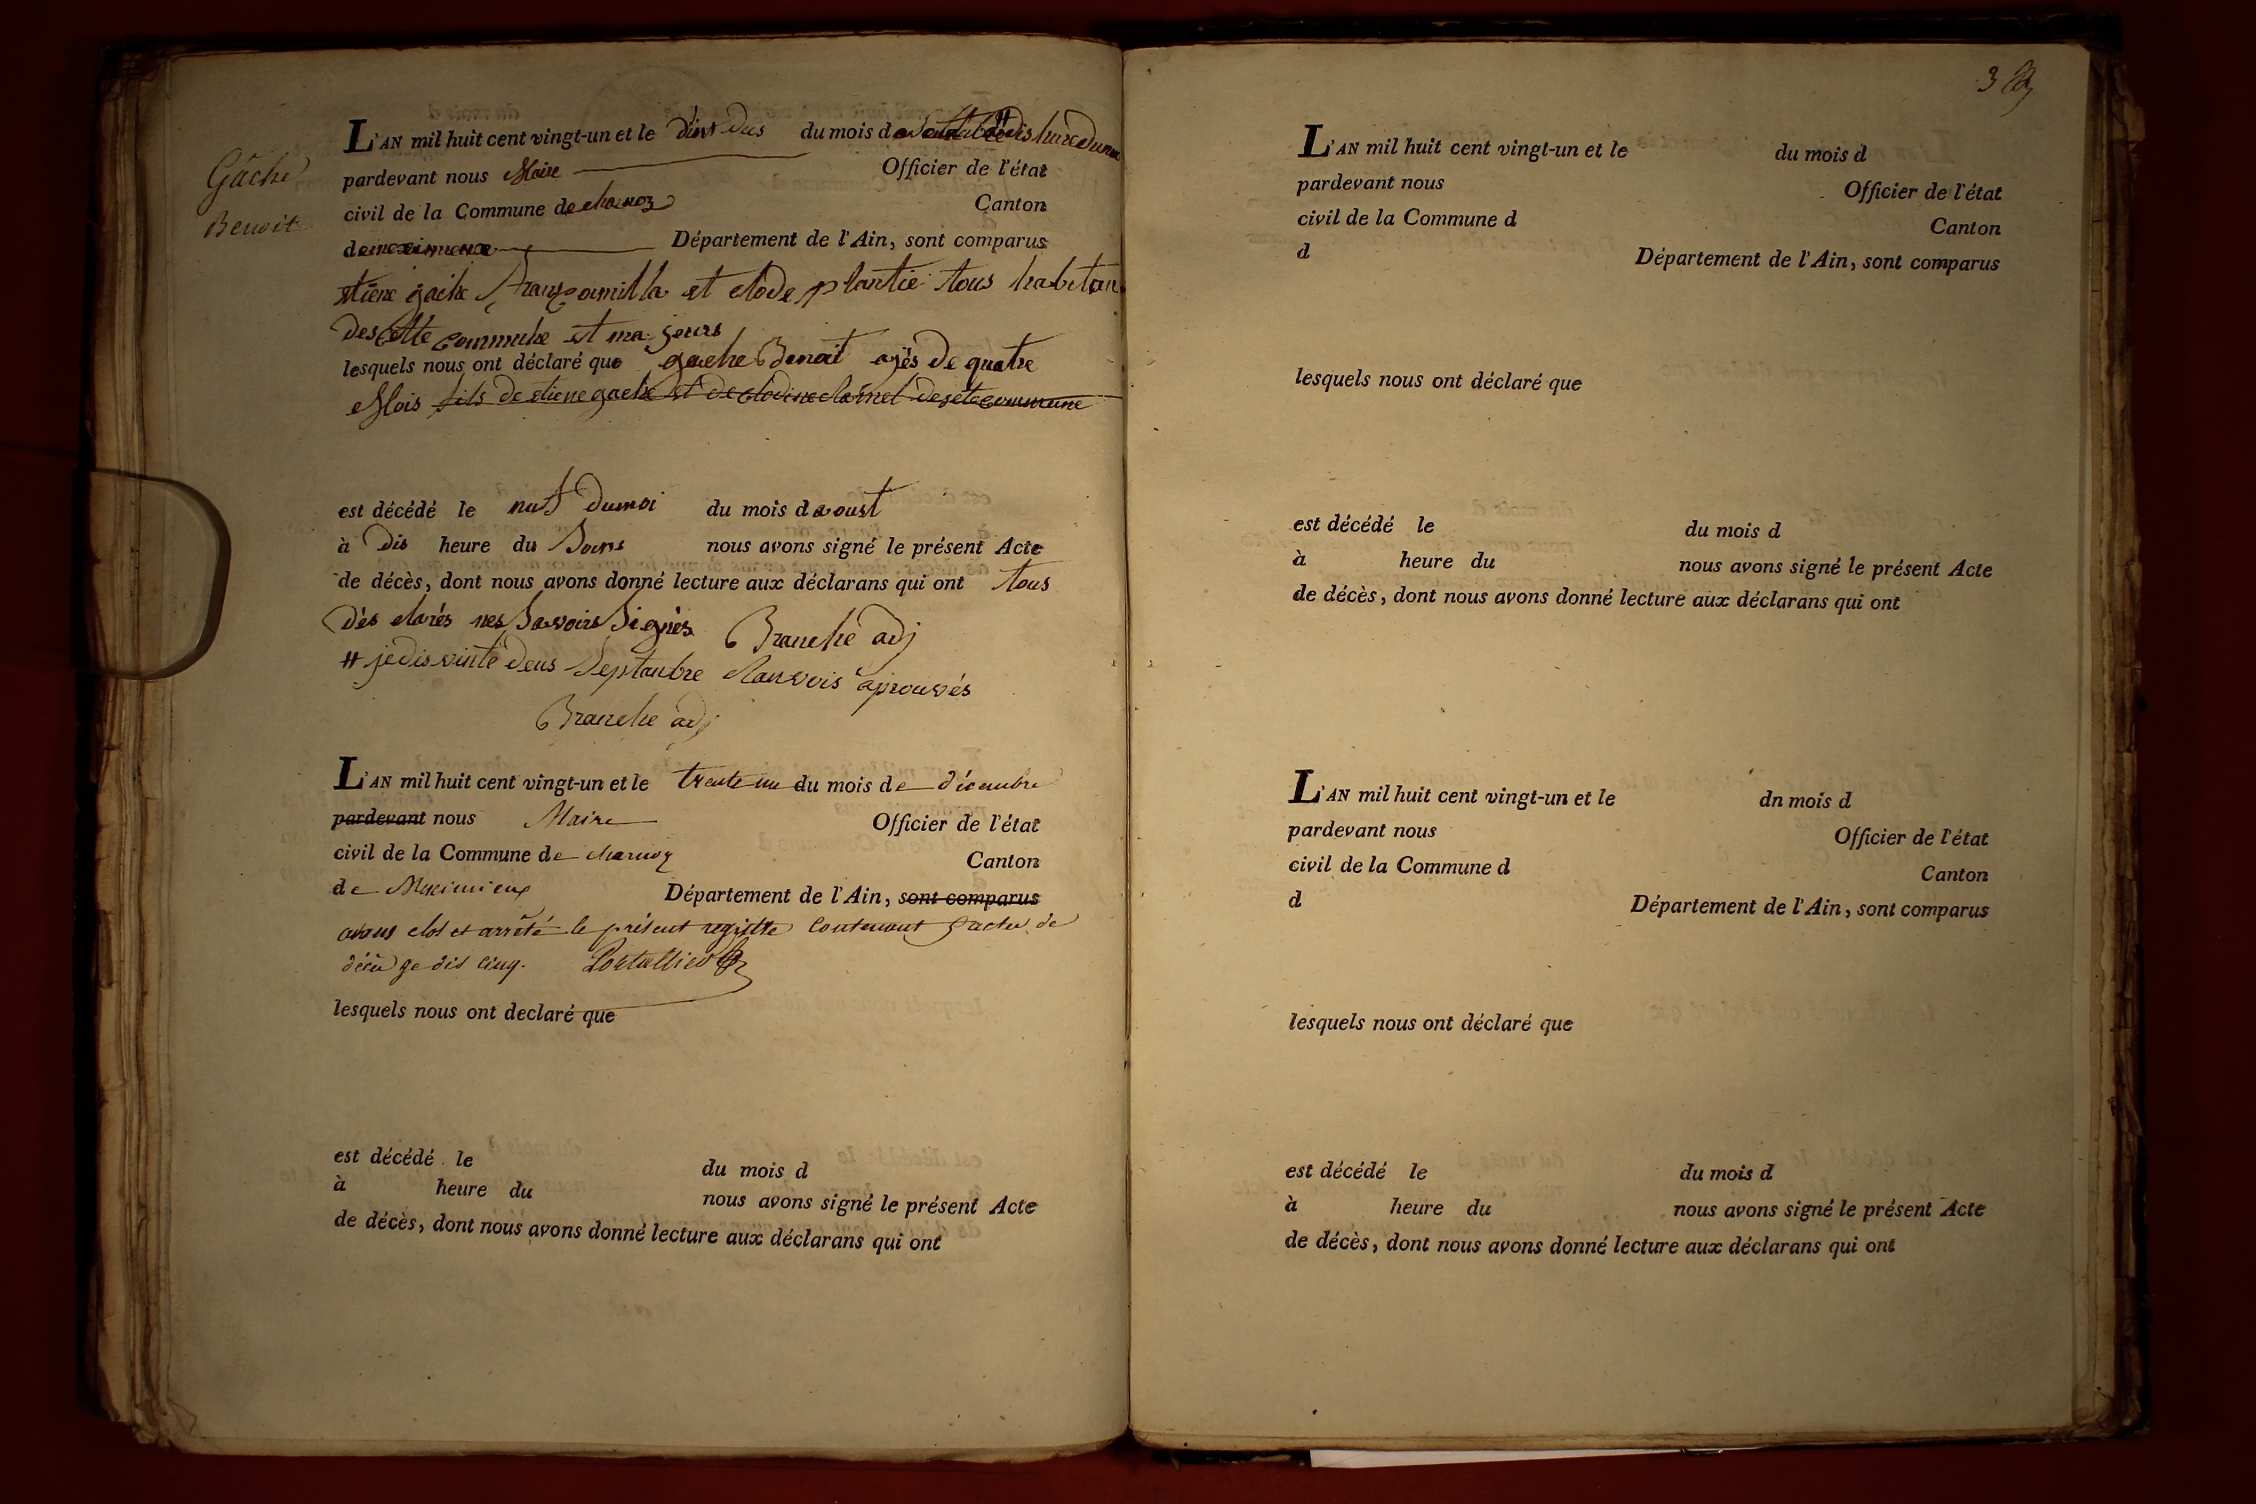 Gâche
Benoit
L'AN mil huit cent vingt-un et le vint deus du mois de dis hure du
pardevant nous Maire Officier de l'état
civil de la Commune de charnoz Canton
de meximieux Département de l'Ain, sont comparus
etiene gache franz et clode plantie tous habitan
des cette commune et majeurs
lesquels nous ont déclaré que gache Benoit agés de quatre
Mois fils de etiene gache et de clodine de sete commune
est décédé le nuf dumoi du mois d aoust
à Dis heure du Soirs nous avons signé le présent Acte
de décès, dont nous avons donné lecture aux déclarans qui ont tous
dés clarés nes Savoirs Signés Branche adj
# je dis vinte deus Septambre Ranvois aprouvés
Branche adj
L'AN mil huit cent vingt-un et le trente un du mois de décembre
pardevant nous Maire Officier de l'état
civil de la Commune de charnoz Canton
de Meximieux Département de l'Ain, sont comparus
avons clos et arrêté le présent registre Contenant d'actes de
décès je dis cinq. Portallier
lesquels nous ont declaré que
est décédé le du mois d
à heure du nous avons signé le présent Acte
de décès, dont nous avons donné lecture aux déclarans qui ont
3
L'AN mil huit cent vingt-un et le du mois d
pardevant nous Officier de l'état
civil de la Commune d Canton
d Département de l'Ain, sont comparus
lesquels nous ont déclaré que
est décédé le du mois d
à heure du nous avons signé le présent Acte
de décès, dont nous avons donné lecture aux déclarans qui ont
L'AN mil huit cent vingt-un et le dn mois d
pardevant nous Officier de l'état
civil de la Commune d Canton
d Département de l'Ain, sont comparus
lesquels nous ont déclaré que
est décédé le du mois d
à heure du nous avons signé le présent Acte
de décès, dont nous avons donné lecture aux déclarans qui ont